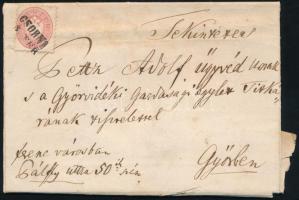 CSORNA
Tekintetes
Petz Adolf ügyvéd Urnak
s a Győrvidéki Gazdasági Egylet Titká-
rának tisztelettel
ferenc városban
Pálfy utca 50ik szám
Győrben